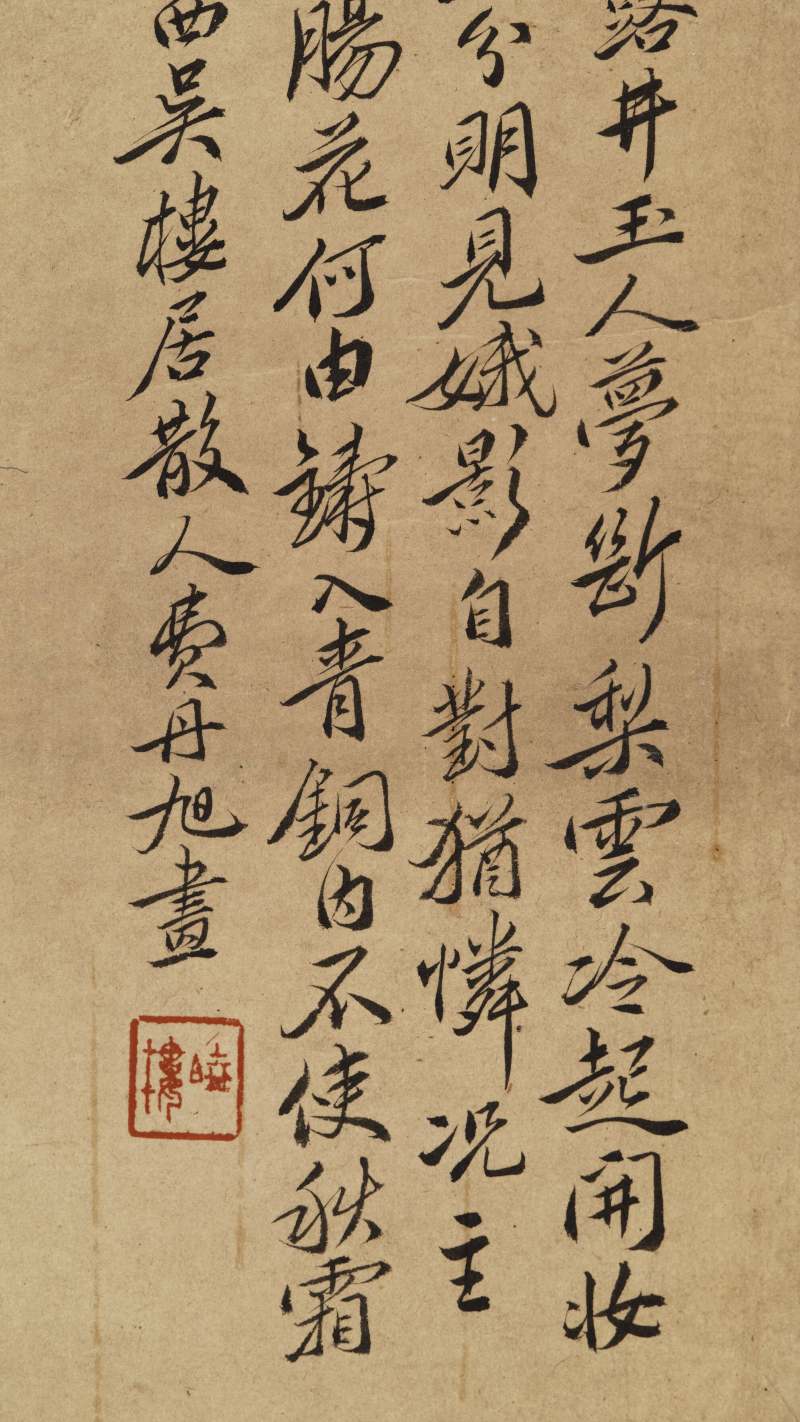 路井玉人夢斷梨雲冷起開妝
分明見娥影自對猶憐况主
腸花何由鑄入青銅内不使秋霜
西吳樓居散人費丹旭畫
曉樓